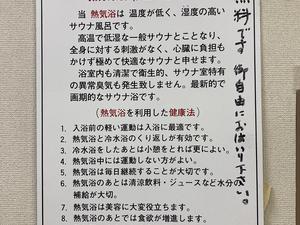 当 熱気浴は 温度が低く、湿度の高い
サウナ風呂です。
高温で低湿な一般サウナとことなり、
全身に対する刺激がなく、心臓に負担も
かけず極めて快適なサウナと申せます。
浴室内も清潔で衛生的、サウナ室特有
の異常臭気も発生致しません。最新的で
画期的なサウナ浴です。
(熱気浴を利用した健康法)
1. 入浴前の軽い運動は入浴に最適です。
2. 熱気浴と冷水浴のくり返しが有効です。
3. 冷水浴をしたあとは小憩をとれば更によい。
4. 熱気浴中には運動しない方がよい。
5. 熱気浴は毎日継続することが大切です。
6. 熱気浴のあとは清涼飲料・ジュースなど水分の
補給が大切。
7. 熱気浴は美容に大変役立ちます。
8. 熱気浴のあとでは食欲が増進します。
無料です
御自由にお使い下さい。